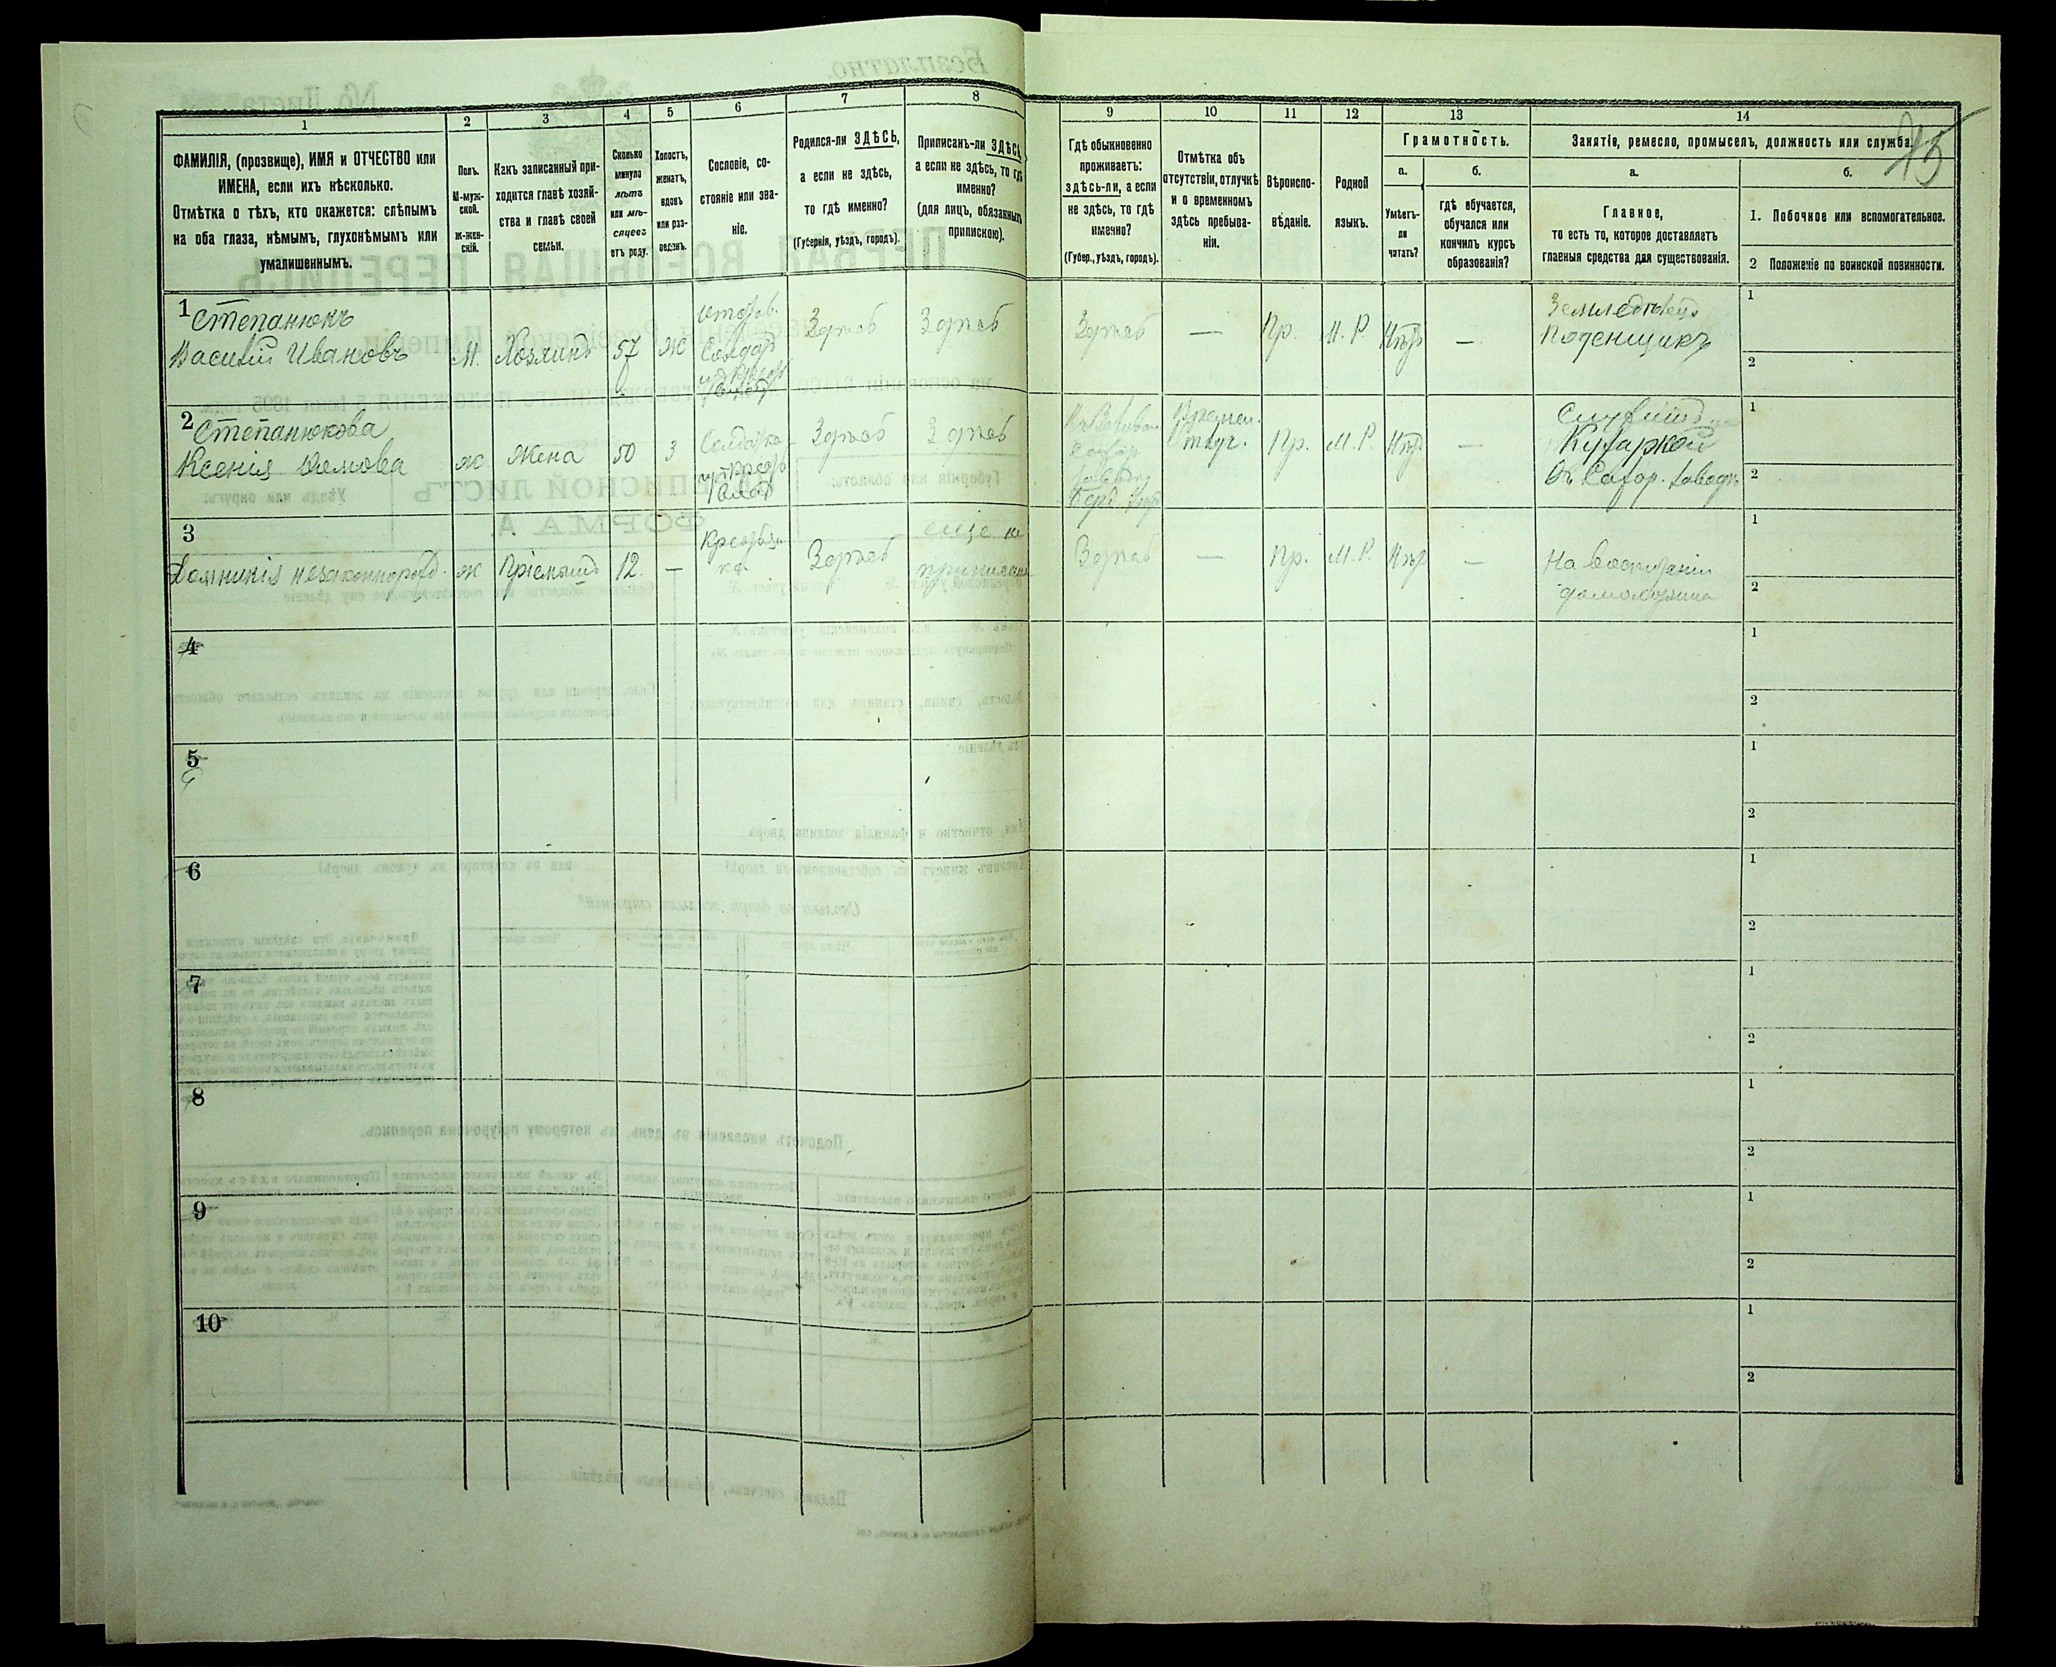 75
1
ФАМИЛІЯ, (прозвище), ИМЯ и ОТЧЕСТВО или
ИМЕНА, если ихъ нѣсколько.
Отмѣтка о тѣхъ, кто окажется: слѣпымъ
на оба глаза, нѣмымъ, глухонѣмымъ или
умалишеннымъ.
2
Полъ.
М-муж-
ской.
Ж-жен-
скій.
3
Какъ записанный при-
ходится главѣ хозяй-
ства и главѣ своей
семьи.
4
Сколько
минуло
лѣтъ
или мѣ-
сяцевъ
отъ роду.
5
Холостъ,
женатъ,
вдовъ
или раз-
веденъ.
6
Сословіе, со-
стояніе или зва-
ніе.
7
Родился-ли ЗДѢСЬ,
а если не здѣсь,
то гдѣ именно?
(Губернія, уѣздъ, городъ).
8
Приписанъ-ли ЗДѢСЬ
а если не здѣсь, то гдѣ
именно?
(для лицъ, обязанныхъ
припискою).
9
Гдѣ обыкновенно
проживаетъ:
здѣсь-ли, а если
не здѣсь, то гдѣ
именно?
(Губер., уѣздъ, городъ).
10
Отмѣтка объ
отсутствіи, отлучкѣ
и о временномъ
здѣсь пребыва-
ніи.
11
Вѣроиспо-
вѣданіе.
12
Родной
языкъ.
13
Грамотность.
а.
Умѣетъ-
ли
читать?
б.
гдѣ обучается,
обучался или
кончилъ курсъ
образованія?
14
Занятіе, ремесло, промыселъ, должность или служба.
а.
Главное,
то есть то, которое доставляетъ
главныя средства для существованія.
б.
1. Побочное или вспомогательное.
2 Положеніе по воинской повинности.
1
Степанюкъ
Василій Ивановъ
М.
Хозяинъ
57
Ж
Солдатъ
Здѣсь
Здѣсь
Здѣсь
—
Пр.
М. Р.
Нѣтъ
—
Земледѣлецъ
Поденщикъ
1
2
2
Степанюкова
Ксенія
ж
Жена
50
З
Солдатка
Здѣсь
Здѣсь
Пр.
М. Р.
Нѣтъ
—
Служитъ
Кухаркой
въ Сахар. заводѣ
1
2
3
Домникія незаконнорожд.
ж
Пріемышъ
12.
—
Крестьян
ка
Здѣсь
еще не
приписана
Здѣсь
—
Пр.
М. Р.
Нѣтъ
—
На воспитаніи
домохозяина
1
2
4
1
2
5
1
2
6
1
2
7
1
2
8
1
2
9
1
2
10
1
2